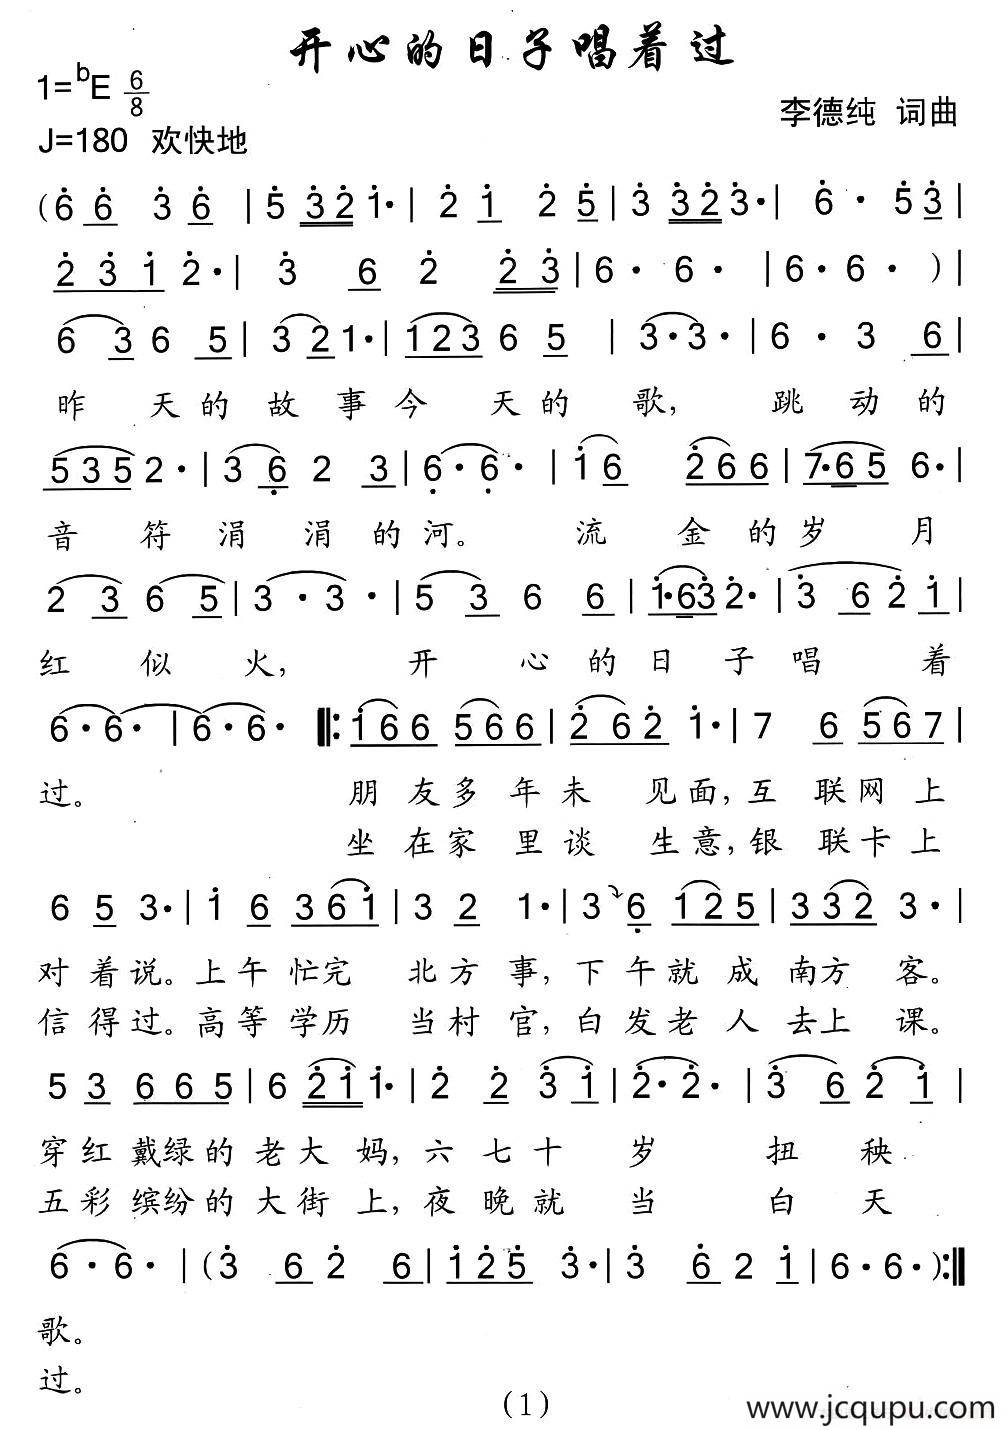 开心的日子唱着过
1=ᵇE 6/8
李德纯 词曲
J=180 欢快地
(6̇ 6̇ 3̇ 6̇ | 5̇ 3̇2̇ 1̇· | 2̇ 1̇ 2̇ 5̇ | 3̇ 3̇2̇3̇· | 6̇ · 5̇3̇ |
2̇ 3̇ 1̇ 2̇· | 3̇ 6 2̇ 2̇ 3̇ | 6· 6· | 6· 6· ) |
6 3 6 5 | 3 2 1· | 1 2 3 6 5 | 3· 3· | 6· 3 6 |
昨天的故事今天的歌,跳动的
5 3 5 2· | 3 6̣ 2 3 | 6̣· 6̣· | 1̇ 6 2̇ 6 6 | 7· 6 5 6· |
音符涓涓的河。流金的岁月
2 3 6 5 | 3 · 3 · | 5 3 6 6 | 1̇· 6 3̇ 2̇· | 3̇ 6 2̇ 1̇ |
红似火,开心的日子唱着
6· 6· | 6· 6· ‖: 1̇ 6 6 5 6 6 | 2̇ 6 2̇ 1̇· | 7 6 5 6 7 |
过。朋友多年未见面,互联网上
坐在家里谈生意,银联卡上
6 5 3· | 1̇ 6 3 6 1̇ | 3 2 1· | 3 6̣ 1 2 5 | 3 3 2 3· |
对着说。上午忙完北方事,下午就成南方客。
信得过。高等学历当村官,白发老人去上课。
5 3 6 6 5 | 6 2̇ 1̇ 1̇· | 2̇ 2̇ 3̇ 1̇ | 2̇· 2̇· | 3̇ 6 2̇ 1̇ |
穿红戴绿的老大妈,六七十岁扭秧
五彩缤纷的大街上,夜晚就当白天
6· 6· | (3̇ 6 2̇ 6 | 1̇ 2̇ 5̇ 3̇· | 3̇ 6̇ 2 1̇ | 6· 6· ) :‖
歌。
过。
(1)
www.jcqupu.com